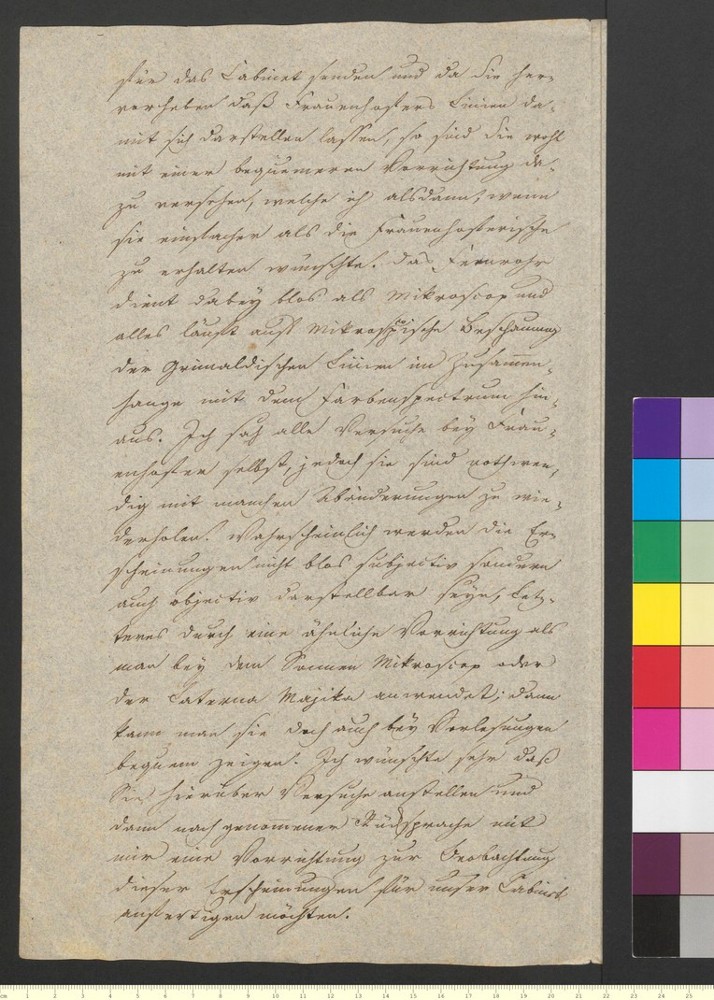 für das Cabinet senden und da Sie her-
vorheben daß Frauenhofers Linien da-
mit sich darstellen lassen, so sind sie wohl
mit einer bequemeren Vorrichtung da-
zu versehen, welche ich alsdann, wenn
sie einfacher als die Frauenhoferische
zu erhalten wünschte. Das Fernrohr
dient dabey blos als Mikroscop und
alles läuft auf Mikroscopische Beschauung
der Grimaldischen Linien im Zusammen-
hange mit dem Farbenspectrum hin-
aus. Ich sah alle Versuche bey Frau-
enhofer selbst, jedoch sie sind nothwen-
dig mit manchen Abänderungen zu wie-
derholen. Wahrscheinlich werden die Er-
scheinungen nicht blos subjectiv sondern
auch objectiv darstellbar seyn, Letz-
teres durch eine ähnliche Vorrichtung als
man bey dem Sonnen Mikroscop oder
der Laterna Majika anwendet; dann
kann man sie doch auch bey Vorlesungen
bequem zeigen. Ich wünschte sehr daß
Sie hierüber Versuche anstellen und
dann nach genomener Rücksprache mit
mir eine Vorrichtung zur Beobachtung
dieser Erscheinungen für unser Cabinet
anfertigen möchten.